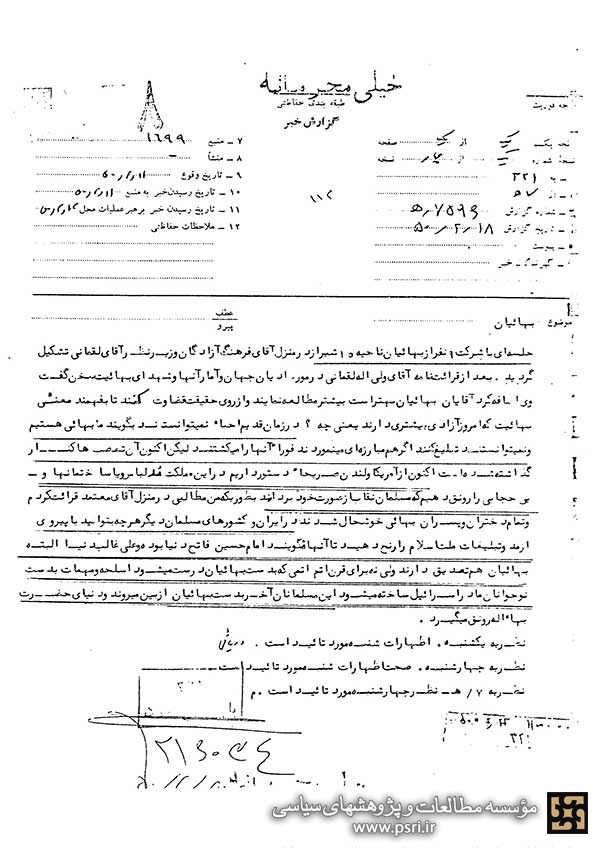 خیلی محرمانه
طبقه بندی حفاظتی
گزارش خبر
نسخه شماره
از
نسخه
صفحه
به ۳۲۱
شماره گزارش
تاریخ گزارش
پیوست
گیرندگان خبر
۷ – منبع ۱۶۹۹
۸ – منشأ
۹ – تاریخ وقوع
۱۰ – تاریخ رسیدن خبر به منبع
۱۱ – تاریخ رسیدن خبر برهبر عملیات محل
۱۲ – ملاحظات حفاظتی
موضوع بهائیان
عطف
پیرو
جلسه‌ای با شرکت ۹ نفر از بهائیان ناحیه ۱۵ شیراز در منزل آقای فرهنگ آزادگان و زیر نظر آقای لقمانی تشکیل
گردید. بعد از قرائت نامه آقای ولی اله لقمانی در مورد ادیان جهان و آمار آنها و شهدای بهائیت سخن گفت
وی اضافه کرد آقایان بهائیان بهتر است بیشتر مطالعه نمایند و از روی حقیقت قضاوت کنند تا بفهمند معنی
بهائیت که امروز آزادی بیشتری دارند یعنی چه ؟ در زمان قدیم احباء نمیتوانستند بگویند ما بهائی هستیم
و نمیتوانستند تبلیغ کنند اگر هم مبارزه‌ای مینمودند فورا آنها را میکشتند لیکن اکنون آن تعصب‌ها کنار
گذاشته شده است اکنون از آمریکا و لندن صریحا دستور داریم در این مملکت مد لباس و یا ساختمانها و –
بی حجابی را رونق دهیم که مسلمان نقاب از صورت خود بردارند بطوریکه من مطالبی در منزل آقای معتمد قرائت کردم
و تمام دختران و پسران بهائی خوشحال شدند در ایران و کشورهای مسلمان دیگر هر چه بتوانید با پیروی
از مد و تبلیغات ملت اسلام را رنج دهید تا آنها نگویند امام حسین فاتح دنیا بوده و علی غالب دنیا البته
بهائیان هم تصدیق دارند ولی نه برای قرن اتم اتمی که بدست بهائیان درست میشود اسلحه و مهمات بدست
نوجوانان ما در اسرائیل ساخته میشود این مسلمانان آخر بدست بهائیان از بین میروند و دنیای حضرت
بهاءاله رونق میگیرد.
نظریه یکشنبه . اظهارات شنبه مورد تائید است .
نظریه چهارشنبه . صحت اظهارات شنبه مورد تائید است .
نظریه ۷ / ه‍ – نظر چهارشنبه مورد تائید است . م
مؤسسه مطالعات و پژوهشهای سیاسی
www.psri.ir